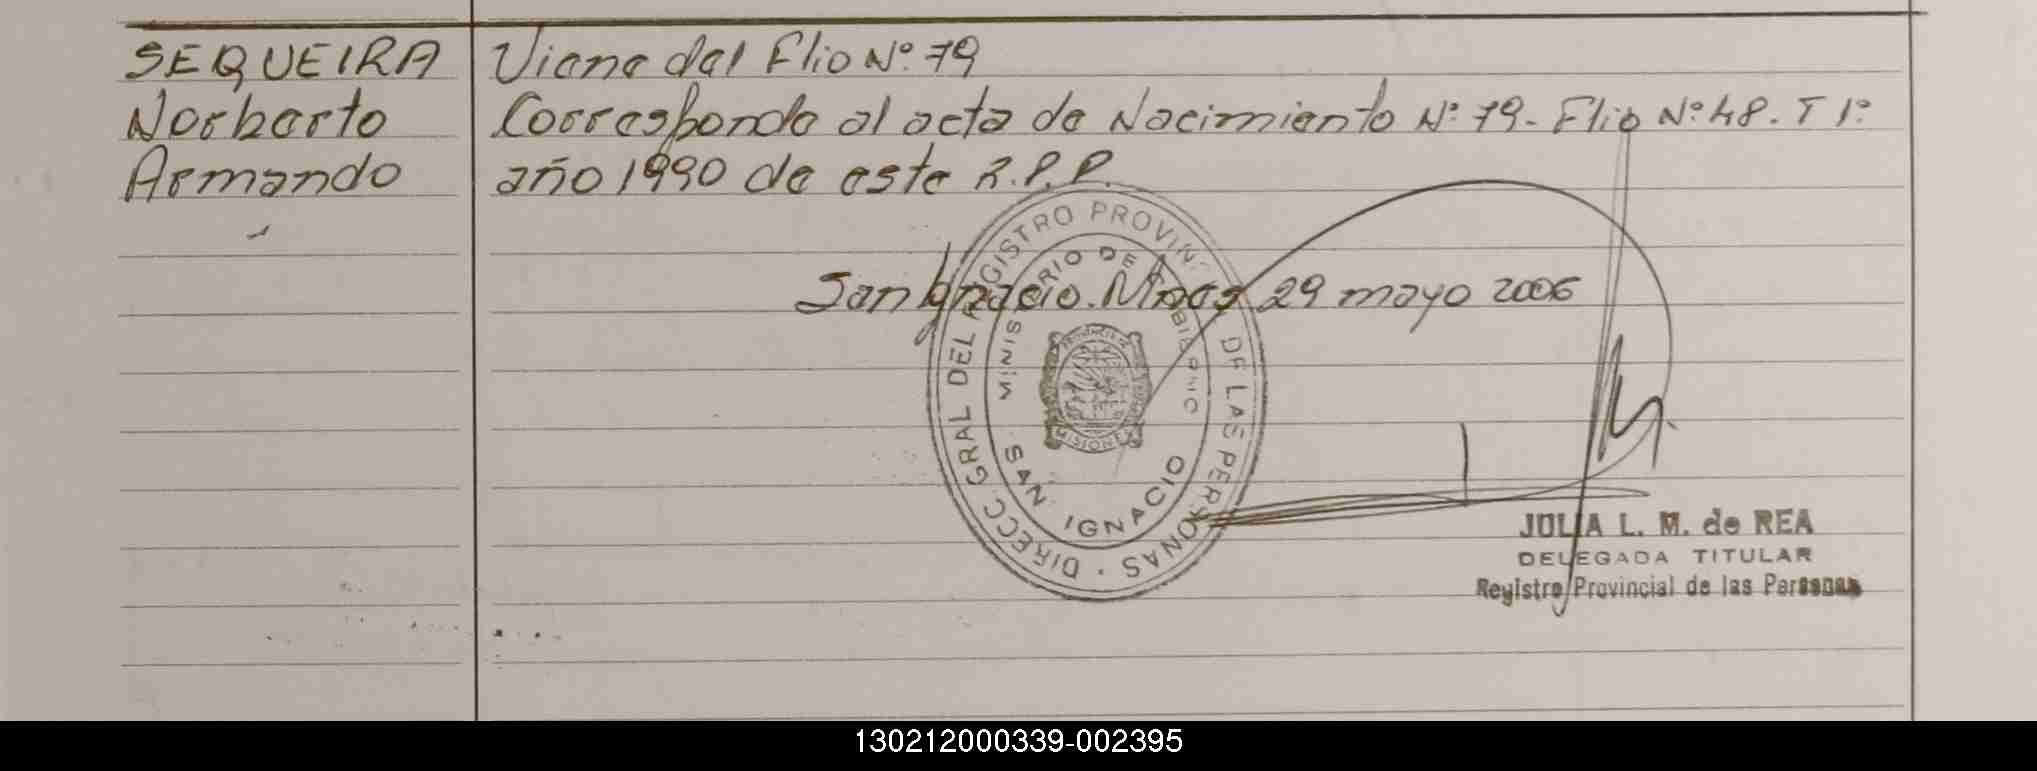 SEQUEIRA
Norberto
Armando
Viene del Flio Nº 79
Corresponde al acta de Nacimiento Nº 79- Flio Nº 48. T 1º
año 1990 de este R.P.P.
San Ignacio. Mnes 29 mayo 2006
DIRECC GRAL DEL REGISTRO PROVIN. DE LAS PERSONAS
MINISTERIO DE GOBIERNO
PROVINCIA DE
MISIONES
SAN IGNACIO
JULIA L. M. de REA
DELEGADA TITULAR
Registro Provincial de las Personas
130212000339-002395